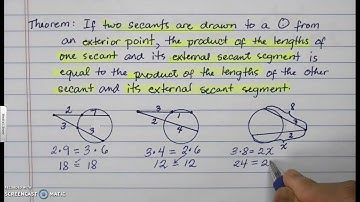 Theorem: If two secants are drawn to a ⊙ from
an exterior point, the product of the lengths of
one secant and its external secant segment is
equal to the product of the lengths of the other
secant and its external secant segment.
2 7 3 3
3 1 2 4
8 3 2 x
2·9 = 3·6 3·4 = 2·6 3·8 = 2x
18 ≤ 18 12 ≤ 12 24 = 2
SCREENCAST MATIC